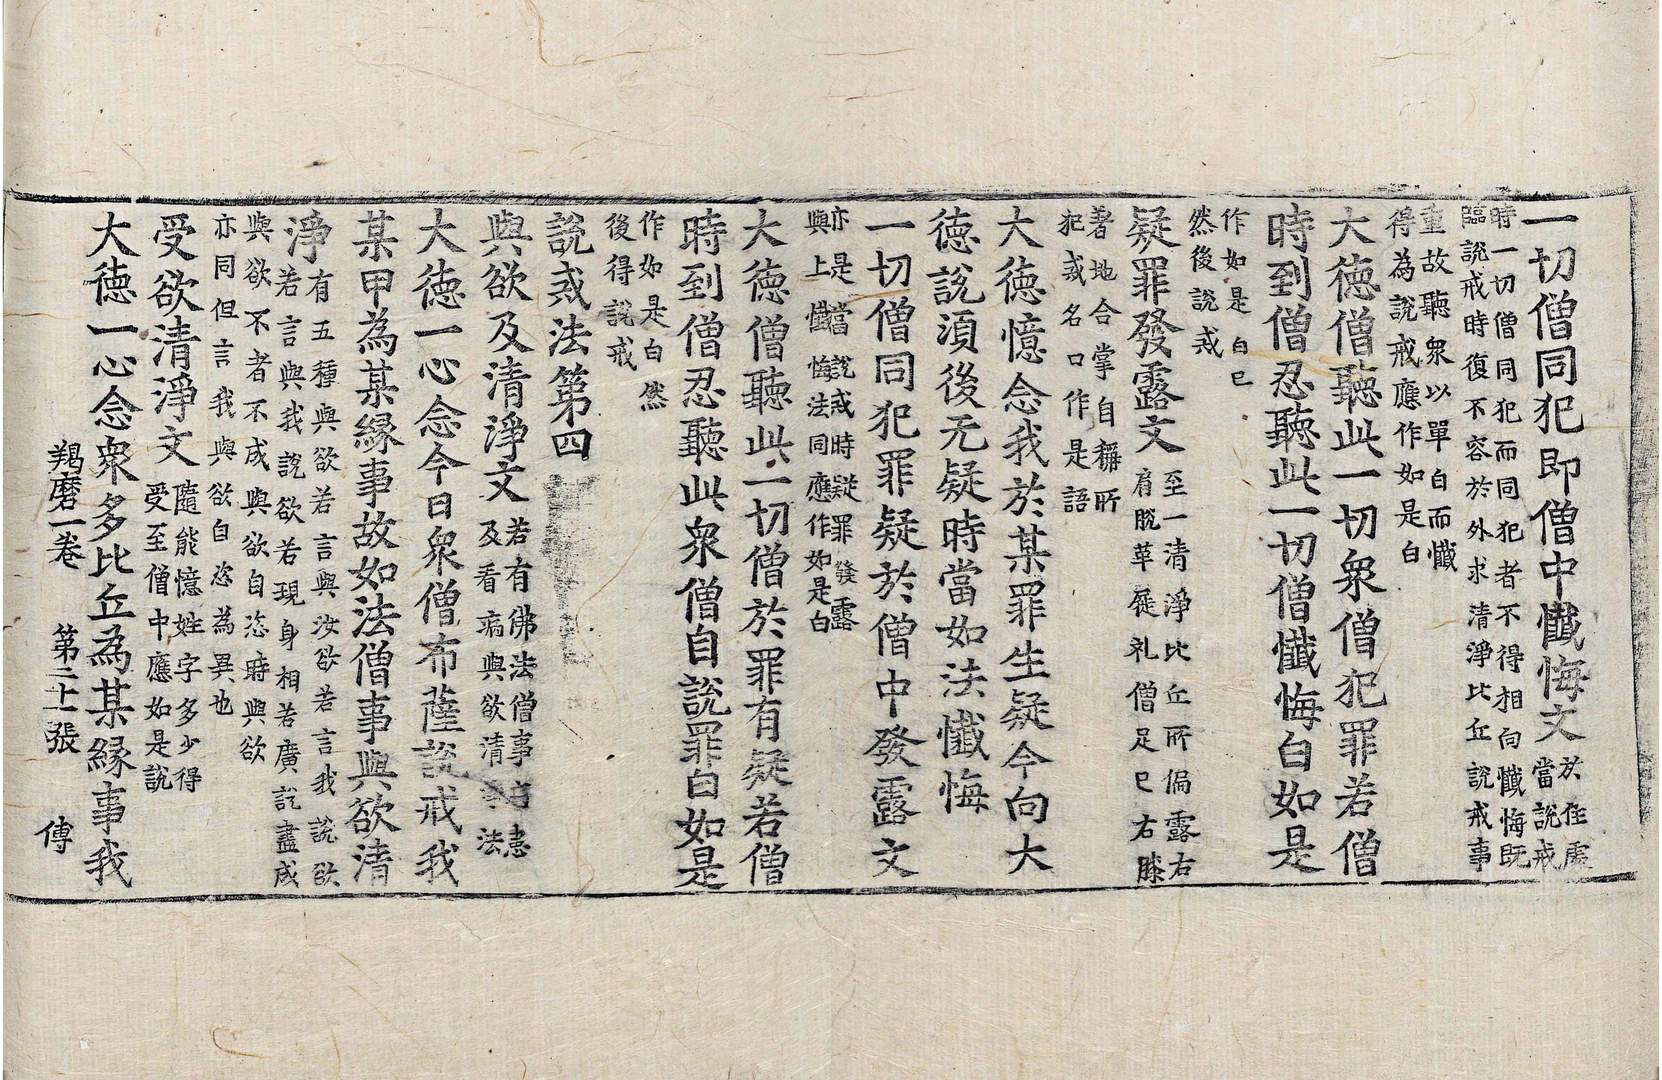 一切僧同犯即僧中懺悔文於住處當說戒
時一切僧同犯而同犯者不得相向懺悔既
臨說戒時復不容於外求清淨比丘說戒事
重故聽衆以單白而懺
得為說戒應作如是白
大德僧聽此一切衆僧犯罪若僧
時到僧忍聽此一切僧懺悔白如是
作如是白已
然後說戒
疑罪發露文至一清淨比丘所偏露右肩脫革屣礼僧足已右膝
著地合掌自稱所
犯戒名口作是語
大德憶念我於某罪生疑今向大
德說湏後无疑時當如法懺悔
一切僧同犯罪疑於僧中發露文
亦是當說戒時疑罪發露
與上懺悔法同應作如是白
大德僧聽此一切僧於罪有疑若僧
時到僧忍聽此衆僧自說罪白如是
作如是白然
後得說戒
說戒法第四
與欲及清淨文若有佛法僧事病患及看病與欲清法
大德一心念今日衆僧布薩說戒我
某甲為某緣事故如法僧事與欲清
淨有五種與欲若言與汝欲若言我說欲
若言與我說欲若現身相若廣說盡成
與欲不者不成與欲自恣時與欲
亦同但言我與欲自恣為異也
受欲清淨文隨能憶姓字多少得受至僧中應如是說
大德一心念衆多比丘為某緣事我
羯磨一卷 第二十張 傅